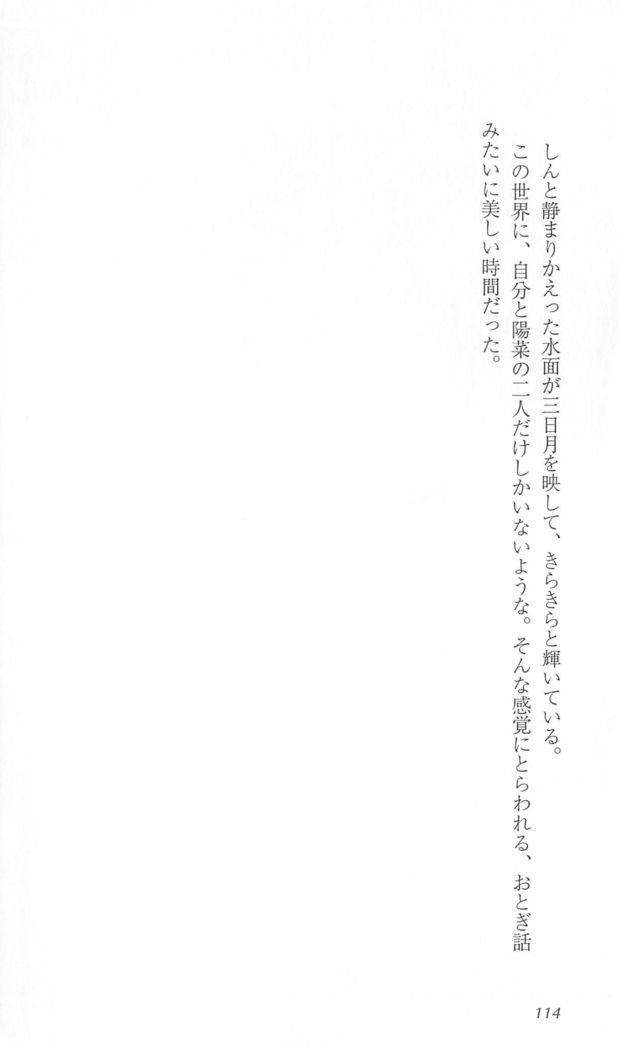 しんと静まりかえった水面が三日月を映して、きらきらと輝いている。
この世界に、自分と陽菜の二人だけしかいないような。そんな感覚にとらわれる、おとぎ話
みたいに美しい時間だった。
114